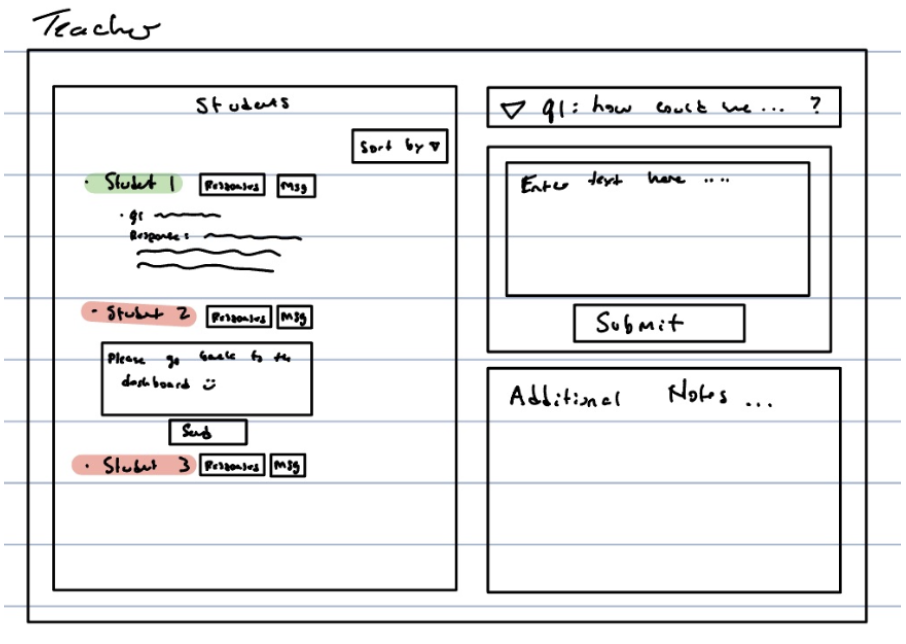 Teacher
Students
Sort by
· Student 1 Responses Msg
· q1
Response:
· Student 2 Responses Msg
Please go back to the
dashboard
Send
· Student 3 Responses Msg
q1: how could we ... ?
Enter text here ....
Submit
Additional Notes ...